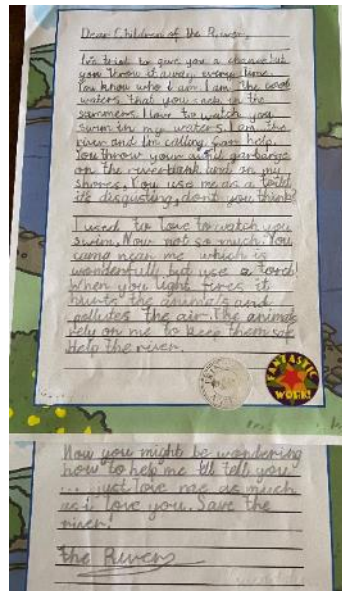 Dear Children of the River,
I've tried to give you a chance but
you throw it away every time.
You know who I am. I am the cool
waters that you in the
summers. I love to watch you
swim in my waters. I am the
river and I'm calling for help.
You throw your garbarge
on the riverbank and in my
shores. You use me as a toilet
it's disgusting, dont you think?
I used to love to watch you
swim. Now not so much. You
camp near me which is
wonderfull, but use a torch!
When you light fires it
hurts the animals and
pollutes the air. The animals
rely on me to keep them safe
Help the river.
FANTASTIC
WORK!
Now you might be wondering
how to help me I'll tell you
... just love me as much
as i love you. Save the
river!
The River